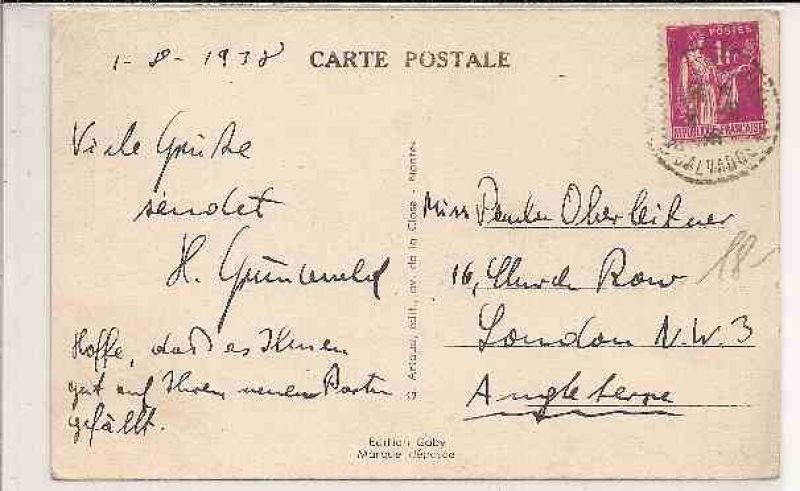 1-8-1938 CARTE POSTALE
POSTES
1F
REPUBLIQUE FRANÇAISE
CALVADOS
Viele Grüße
sendet
H. Grünwald
Hoffe, dass es Ihnen
gut auf Ihrem neuen Posten
gefällt.
G. Artaud, édit., av. de la Close - Nantes
Miss Oberleitner
16, Church Row
London N.W.3
Angleterre
18-
Edition Gaby
Marque déposée